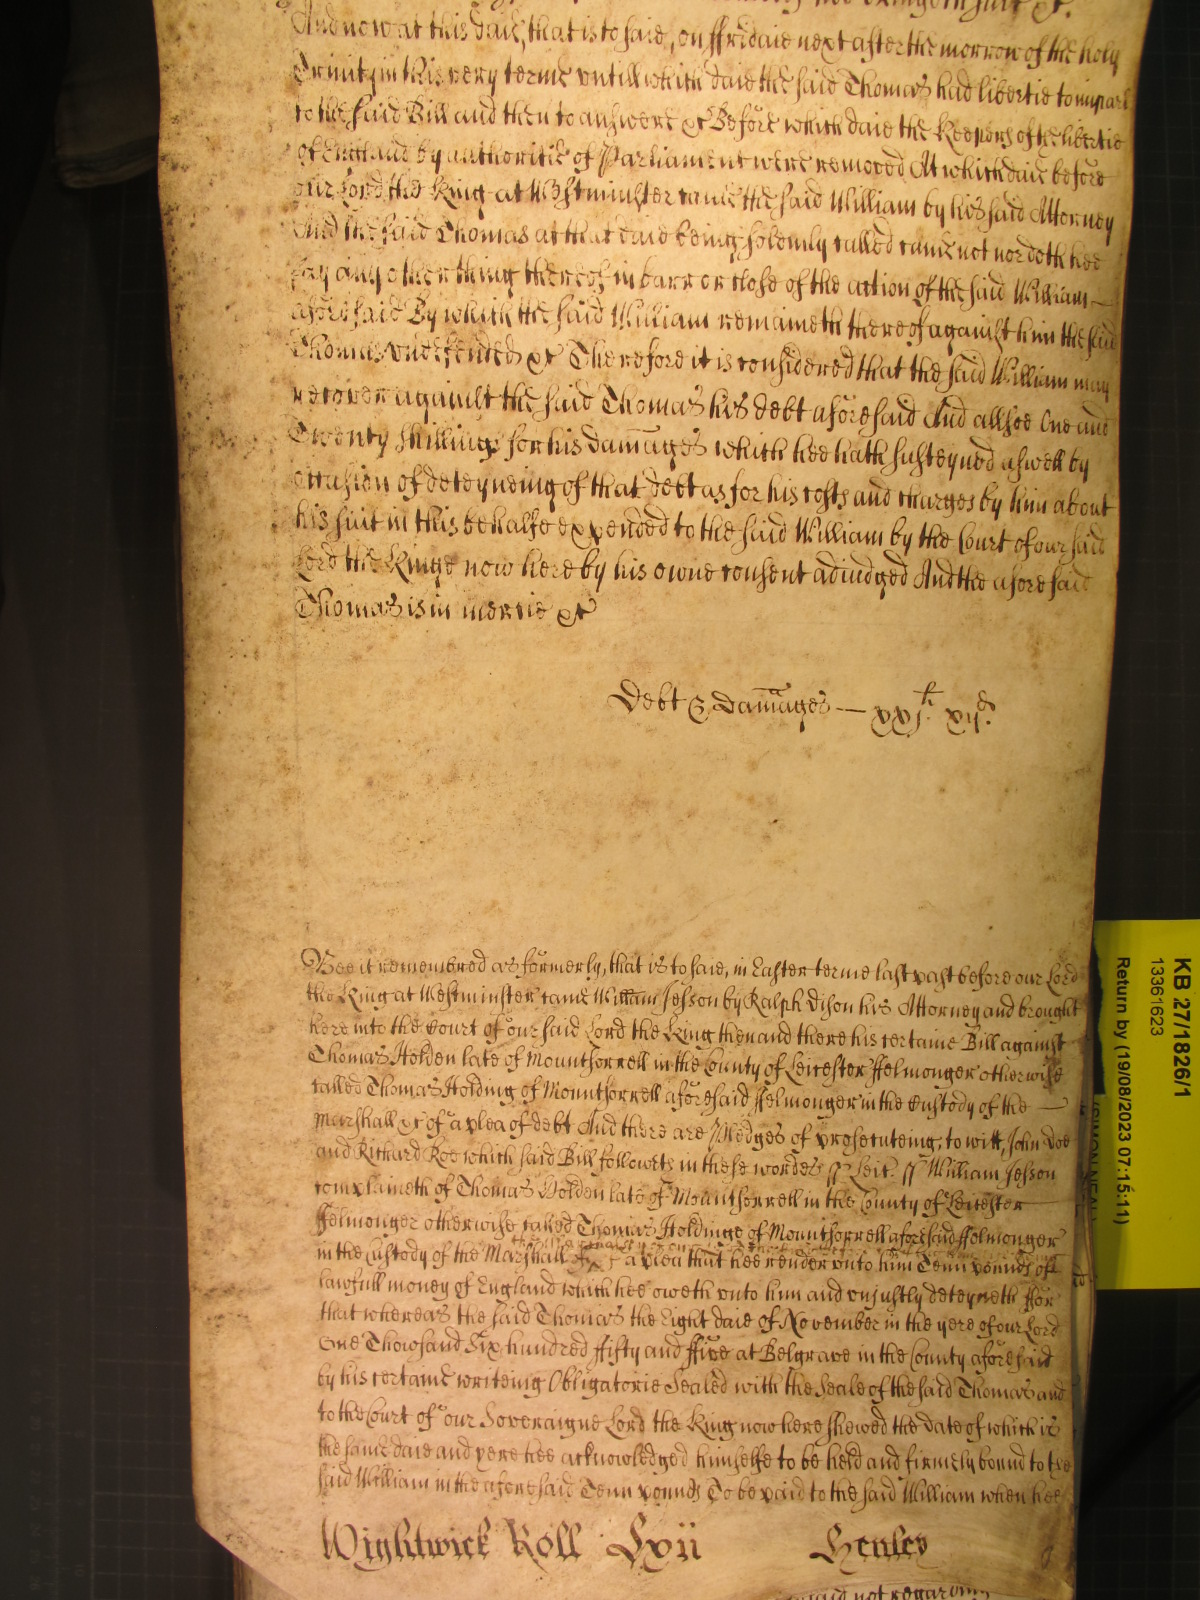 not bringeth suit &c.
And now at this daie, that is to saie, on ffridaie next after the morrow of the holy
Trinity in this very terme untill which daie the said Thomas had libertie to imparl
to the said Bill and then to answere &c Before which daie the Keepers of the libertie
of England by authoritie of Parliament were removed At which daie before
our Lord the King at Westminster came the said William by his said Attorney
And the said Thomas at that daie being solemly called came not nor doth hee
say any other thing thereof in barr or close of the action of the said William
aforesaid By which the said William remaineth thereof against him the said
Thomas undefended &c Therefore it is considered that the said William may
recover against the said Thomas his debt aforesaid And allsoe One and
Twenty shillings for his damages which hee hath susteyned aswell by
occasion of deteyneing of that debt as for his costs and charges by him about
his suit in this behalfe expended to the said William by the Court of our said
Lord the Kinge now here by his owne consent adiudged And the aforesaid
Thomas is in mercie &c
Debt & Damages — xxj. xijd.
Bee it remembred as formerly, that is to saie, in Easter terme last past before our Lord
the King at Westminster came William Jesson by Ralph Dison his Attorney and brought
here into the Court of our said Lord the King then and there his certaine Bill against
Thomas Holden late of Mountsorrell in the County of Leicester ffelmonger otherwise
called Thomas Holding of Mountsorrell aforesaid ffelmonger in the Custody of the
Marshall &c of a plea of debt And there are Pledges of prosecuteing, to witt, John Doe
and Richard Roe which said Bill followeth in these wordes ss Leic. ss William Jesson
complaineth of Thomas Holden late of Mountsorrell in the County of Leicester
ffelmonger otherwise called Thomas Holdinge of Mountsorrell aforesaid ffelmonger
in the Custody of the Marshall &c of a plea that hee render unto him Tenn pounds of
lawfull money of England which hee oweth unto him and unjustly deteyneth ffor
that whereas the said Thomas the Eight daie of November in the yere of our Lord
One Thowsand Six hundred ffifty and ffive at Belgrave in the County aforesaid
by his certaine writeing Obligatorie Sealed with the Seale of the said Thomas and
to the Court of our Soveraigne Lord the King now here shewed the date of which is
the same daie and yere hee acknowledged himselfe to be held and firmely bound to the
said William in the aforesaid Tenn pounds To be paid to the said William when hee
Wightwick Roll Lxii Henley
said not regarding
KB 27/1826/1
13361623
Return by (19/08/2023 07:15:11)